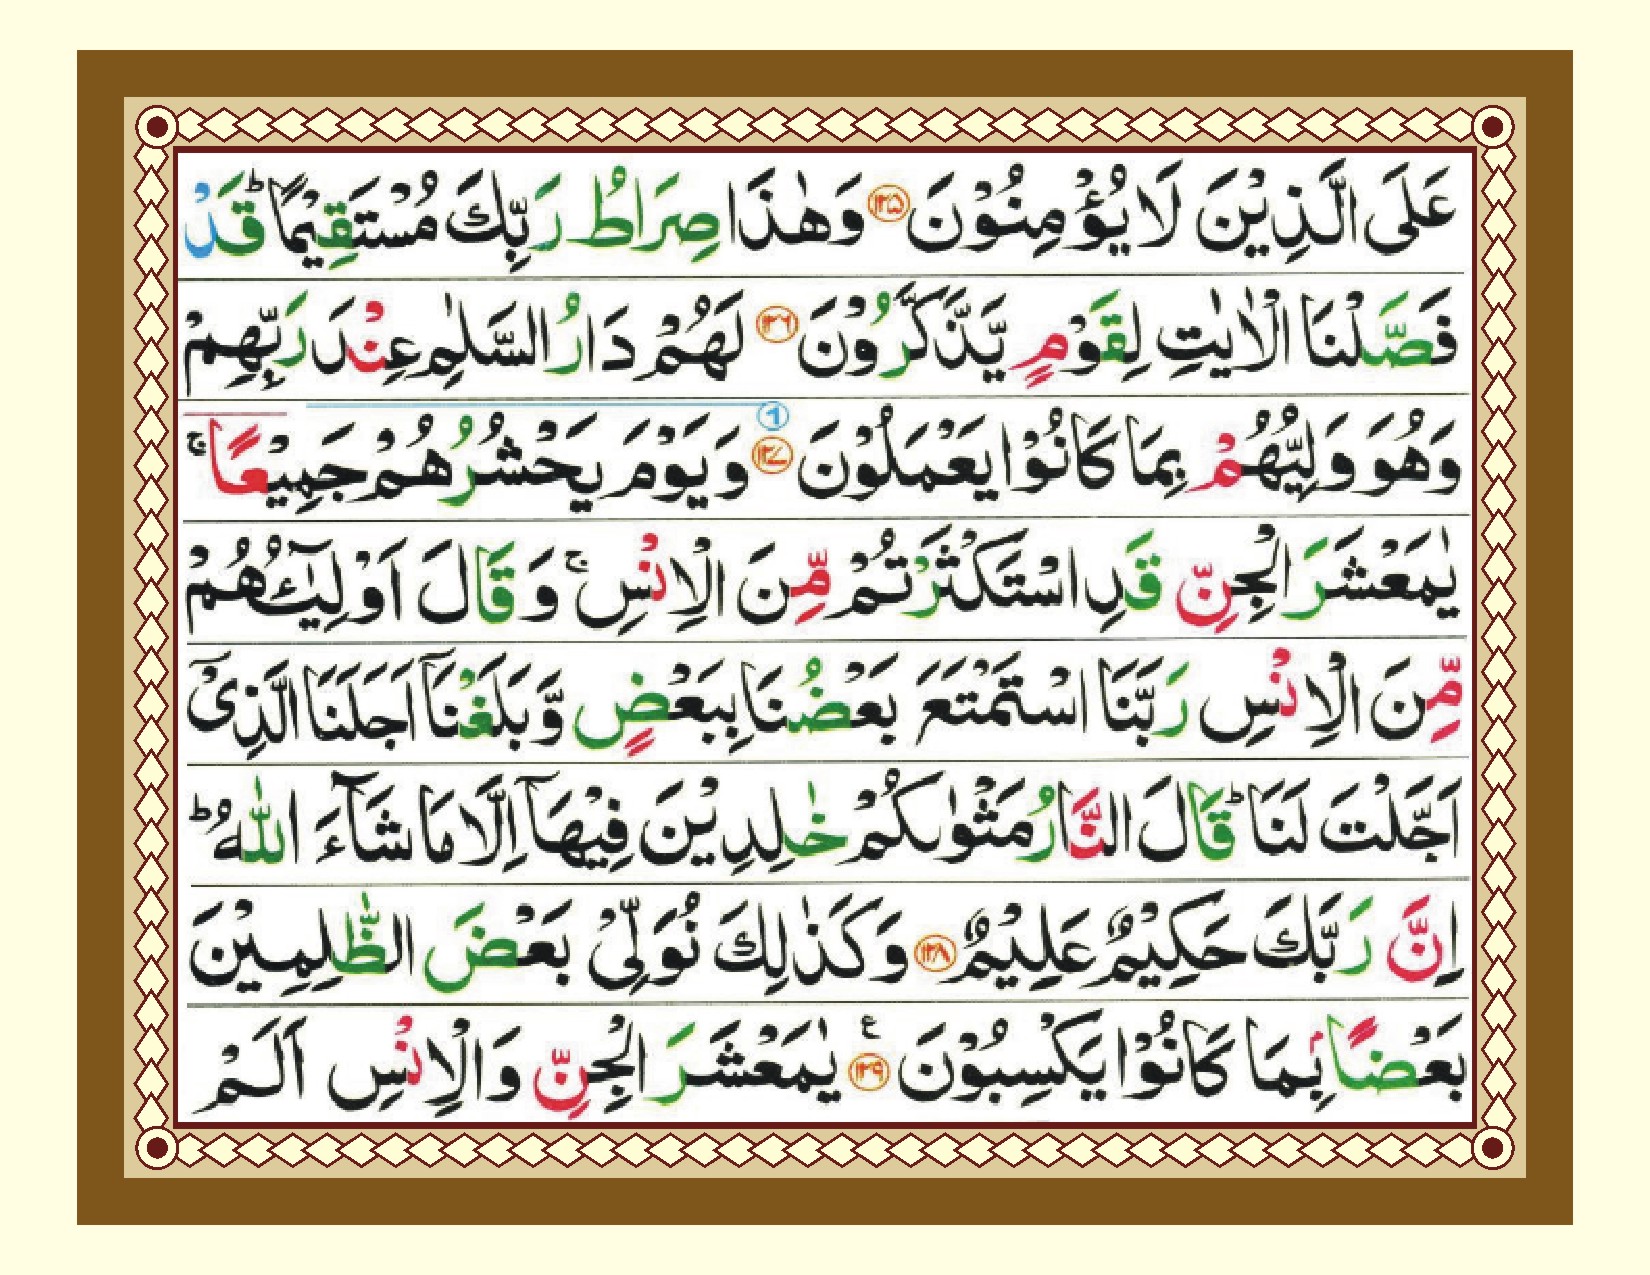 عَلَى الَّذِیْنَ لَا یُؤْمِنُوْنَ ﴿۱۲۵﴾ وَهٰذَا صِرَاطُ رَبِّكَ مُسْتَقِیْمًا ؕ قَدْ
فَصَّلْنَا الْاٰیٰتِ لِقَوْمٍ یَّذَّكَّرُوْنَ ﴿۱۲۶﴾ لَهُمْ دَارُ السَّلٰمِ عِنْدَ رَبِّهِمْ
وَهُوَ وَلِیُّهُمْ بِمَا كَانُوْا یَعْمَلُوْنَ ﴿۱۲۷﴾ وَیَوْمَ یَحْشُرُهُمْ جَمِیْعًا ۚ
یٰمَعْشَرَ الْجِنِّ قَدِ اسْتَكْثَرْتُمْ مِّنَ الْاِنْسِ ۚ وَقَالَ اَوْلِیٰٓـُٔهُمْ
مِّنَ الْاِنْسِ رَبَّنَا اسْتَمْتَعَ بَعْضُنَا بِبَعْضٍ وَّبَلَغْنَاۤ اَجَلَنَا الَّذِیْۤ
اَجَّلْتَ لَنَا ؕ قَالَ النَّارُ مَثْوٰىكُمْ خٰلِدِیْنَ فِیْهَاۤ اِلَّا مَا شَآءَ اللّٰهُ ؕ
اِنَّ رَبَّكَ حَكِیْمٌ عَلِیْمٌ ﴿۱۲۸﴾ وَكَذٰلِكَ نُوَلِّیْ بَعْضَ الظّٰلِمِیْنَ
بَعْضًۢا بِمَا كَانُوْا یَكْسِبُوْنَ ﴿۱۲۹﴾ ع یٰمَعْشَرَ الْجِنِّ وَالْاِنْسِ اَلَمْ